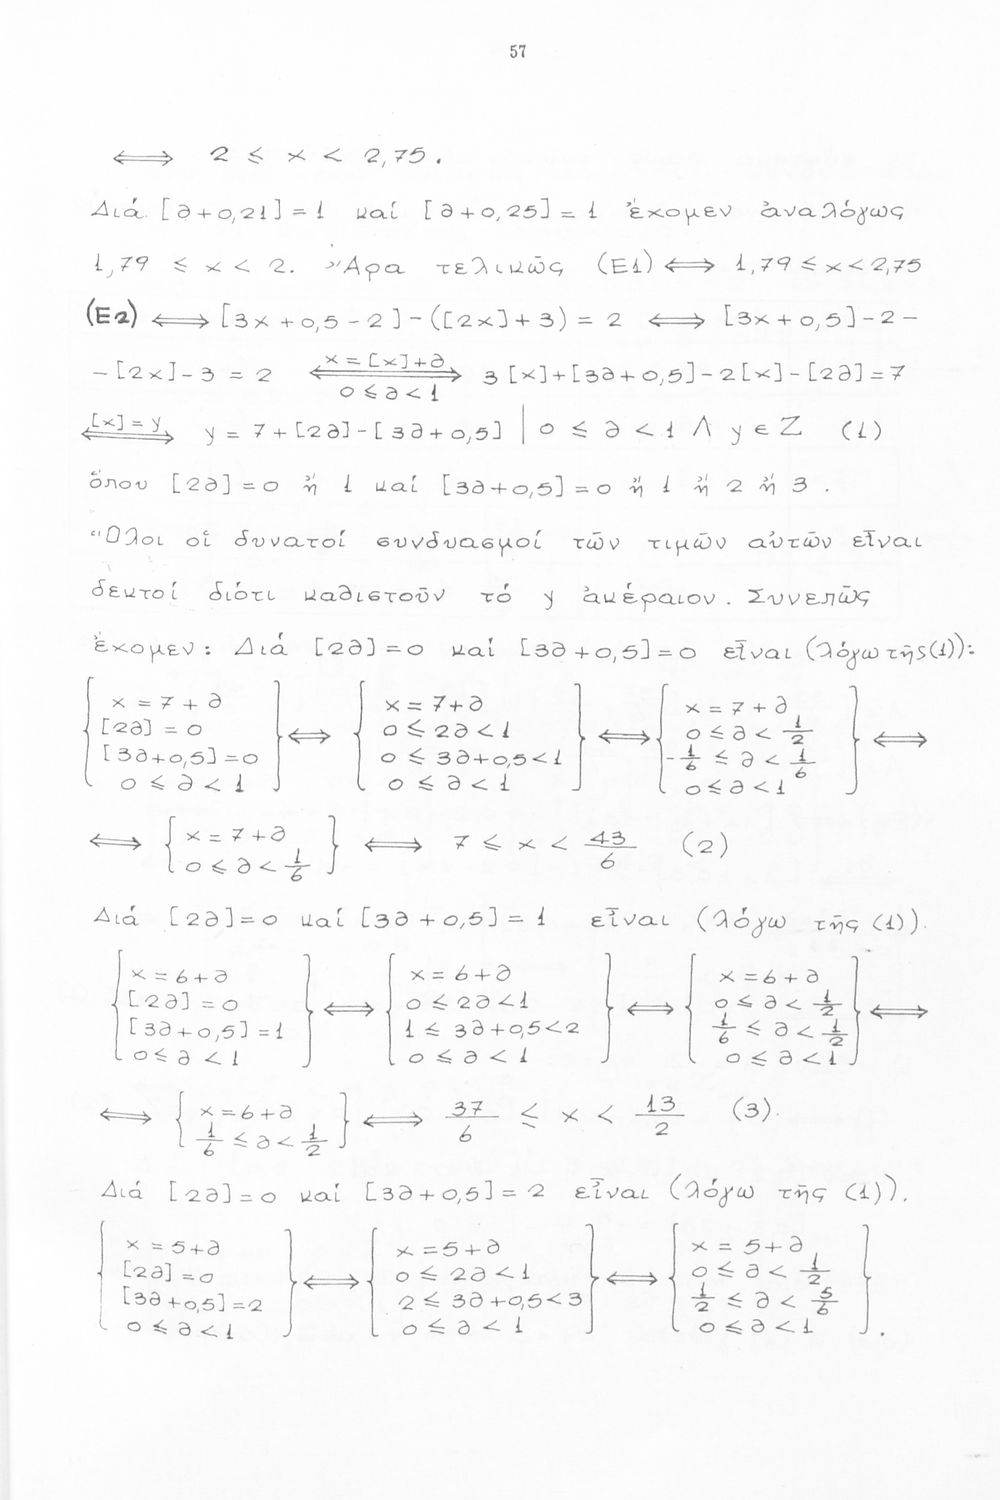 57
⟺ 2 ≤ x < 2,75.
Διά [∂+0,21]=1 καί [∂+0,25]=1 ἔχομεν ἀναλόγως
1,79 ≤ x < 2. Ἄρα τελικῶς (E1) ⟺ 1,79 ≤ x < 2,75
(E2) ⟺ [3x+0,5-2]-([2x]+3) = 2 ⟺ [3x+0,5]-2-
-[2x]-3 = 2 x=[x]+∂ ⟺ 0≤∂<1 3[x]+[3∂+0,5]-2[x]-[2∂]=7
[x]=y ⟺ y = 7+[2∂]-[3∂+0,5] | 0 ≤ ∂ < 1 Λ y ∈ Z (1)
ὅπου [2∂]=0 ἤ 1 καί [3∂+0,5]=0 ἤ 1 ἤ 2 ἤ 3.
Ὅλοι οἱ δυνατοί συνδυασμοί τῶν τιμῶν αὐτῶν εἶναι
δεκτοί διότι καθιστοῦν τό y ἀκέραιον. Συνεπῶς
ἔχομεν: Διά [2∂]=0 καί [3∂+0,5]=0 εἶναι (λόγω τῆς (1)):
{ x = 7+∂ } ⟺ { x = 7+∂ } ⟺ { x = 7+∂ } ⟺
[2∂] = 0 0 ≤ 2∂ < 1 0 ≤ ∂ < 1/2
[3∂+0,5]=0 0 ≤ 3∂+0,5 < 1 -1/6 ≤ ∂ < 1/6
0 ≤ ∂ < 1 0 ≤ ∂ < 1 0 ≤ ∂ < 1
⟺ { x = 7+∂ } ⟺ 7 ≤ x < 43/6 (2)
0 ≤ ∂ < 1/6
Διά [2∂]=0 καί [3∂+0,5]=1 εἶναι (λόγω τῆς (1)).
{ x = 6+∂ } ⟺ { x = 6+∂ } ⟺ { x = 6+∂ } ⟺
[2∂] = 0 0 ≤ 2∂ < 1 0 ≤ ∂ < 1/2
[3∂+0,5]=1 1 ≤ 3∂+0,5 < 2 1/6 ≤ ∂ < 1/2
0 ≤ ∂ < 1 0 ≤ ∂ < 1 0 ≤ ∂ < 1
⟺ { x = 6+∂ } ⟺ 37/6 ≤ x < 13/2 (3).
1/6 ≤ ∂ < 1/2
Διά [2∂]=0 καί [3∂+0,5]=2 εἶναι (λόγω τῆς (1)).
{ x = 5+∂ } ⟺ { x = 5+∂ } ⟺ { x = 5+∂ }.
[2∂] = 0 0 ≤ 2∂ < 1 0 ≤ ∂ < 1/2
[3∂+0,5]=2 2 ≤ 3∂+0,5 < 3 1/2 ≤ ∂ < 5/6
0 ≤ ∂ < 1 0 ≤ ∂ < 1 0 ≤ ∂ < 1